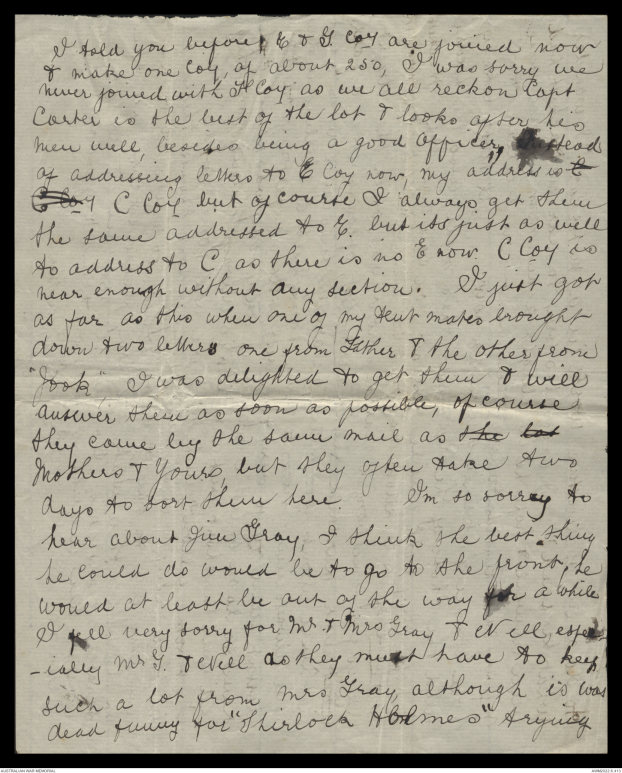 I told you before, E & G Coy are joined now
& make one Coy, of about 250, I was sorry we
never joined with F Coy as we all reckon Capt
Carter is the best of the lot & looks after his
men well, besides being a good Officer, instead
of addressing letters to E Coy now, my address is C
C Coy C Coy but of course I always get them
the same addressed to E. but its just as well
to address to C as there is no E now. C Coy is
near enough without any section. I just got
as far as this when one of my tent mates brought
down two letters one from Father & the other from
"Jook" I was delighted to get them & will
answer them as soon as possible, of course
they came by the same mail as the lot
Mothers & Yours, but they often take two
days to sort them here. I'm so sorry to
hear about Jim Gray, I think the best thing
he could do would be to go to the front, he
would at least be out of the way for a while
I fell very sorry for Mr & Mrs Gray & Nell, espec
-ially Mr G. & Nell as they must have to keep
such a lot from Mrs Gray, although is was
dead funny for "Shirlock Holmes" trying
AUSTRALIAN WAR MEMORIAL